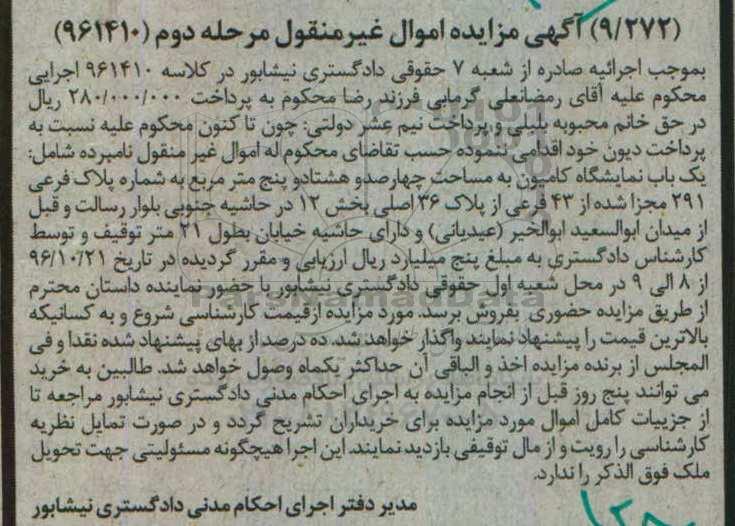 (۹/۲۷۲) آگهی مزایده اموال غیرمنقول مرحله دوم (۹۶۱۴۱۰)
بموجب اجرائیه صادره از شعبه ۷ حقوقی دادگستری نیشابور در کلاسه ۹۶۱۴۱۰ اجرایی
محکوم علیه آقای رمضانعلی گرمابی فرزند رضا محکوم به پرداخت ۲۸۰/۰۰۰/۰۰۰ ریال
در حق خانم محبوبه بلبلی و پرداخت نیم عشر دولتی: چون تا کنون محکوم علیه نسبت به
پرداخت دیون خود اقدامی ننموده حسب تقاضای محکوم له اموال غیر منقول نامبرده شامل:
یک باب نمایشگاه کامیون به مساحت چهارصدو هشتادو پنج متر مربع به شماره پلاک فرعی
۲۹۱ مجزا شده از ۴۳ فرعی از پلاک ۳۶ اصلی بخش ۱۲ در حاشیه جنوبی بلوار رسالت و قبل
از میدان ابوالسعید ابوالخیر (عیدیانی) و دارای حاشیه خیابان بطول ۲۱ متر توقیف و توسط
کارشناس دادگستری به مبلغ پنج میلیارد ریال ارزیابی و مقرر گردیده در تاریخ ۹۶/۱۰/۲۱
از ۸ الی ۹ در محل شعبه اول حقوقی دادگستری نیشابور با حضور نماینده داستان محترم
از طریق مزایده حضوری بفروش برسد. مورد مزایده از قیمت کارشناسی شروع و به کسانیکه
بالاترین قیمت را پیشنهاد نمایند واگذار خواهد شد. ده درصد از بهای پیشنهاد شده نقدا و فی
المجلس از برنده مزایده اخذ و الباقی آن حداکثر یکماه وصول خواهد شد. طالبین به خرید
می توانند پنج روز قبل از انجام مزایده به اجرای احکام مدنی دادگستری نیشابور مراجعه تا
از جزییات کامل اموال مورد مزایده برای خریداران تشریح گردد و در صورت تمایل نظریه
کارشناسی را رویت و از مال توقیفی بازدید نمایند. این اجرا هیچگونه مسئولیتی جهت تحویل
ملک فوق الذکر را ندارد.
مدیر دفتر اجرای احکام مدنی دادگستری نیشابور